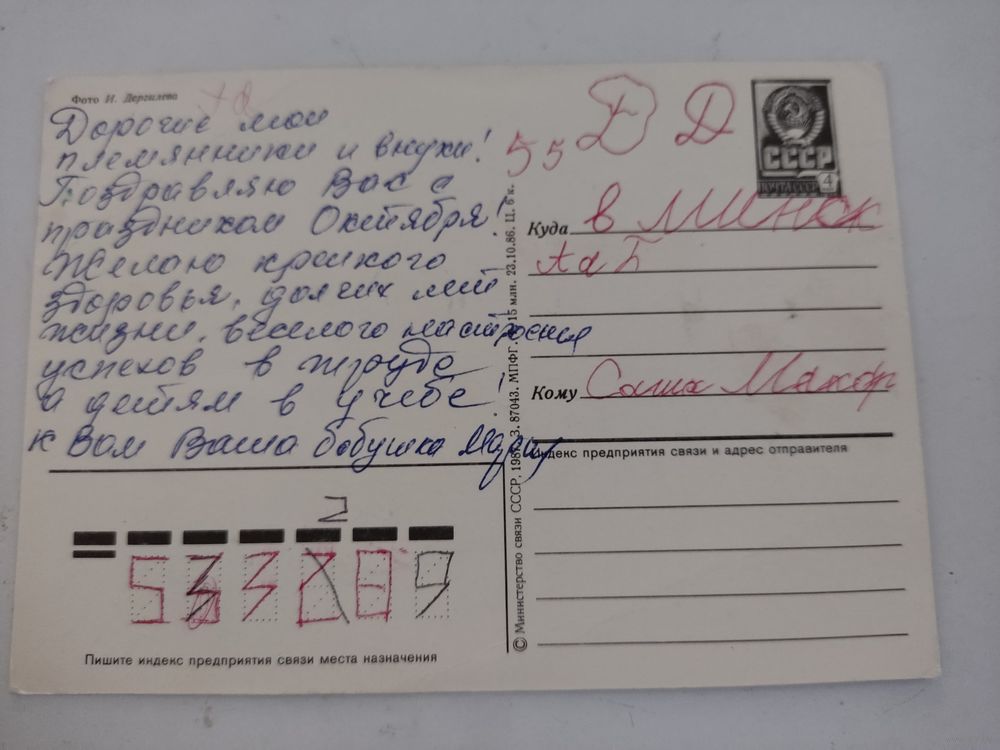 Фото И. Дергилева
Дорогие мои
племянники и внуки!
Поздравляю Вас с
праздником Октября!
Желаю крепкого
здоровья, долгих лет
жизни, веселого настроения
успехов в труде
а детям в учебе!
к Вам Ваша бабушка
55 Д Д
СССР
ПОЧТА СССР 4
Куда в Минск
Кому Саша Макар
Индекс предприятия связи и адрес отправителя
© Министерство связи СССР, 198 З. 87043. МПФГ. 15 млн. 23.10.86. Ц. 6 к.
2
Пишите индекс предприятия связи места назначения